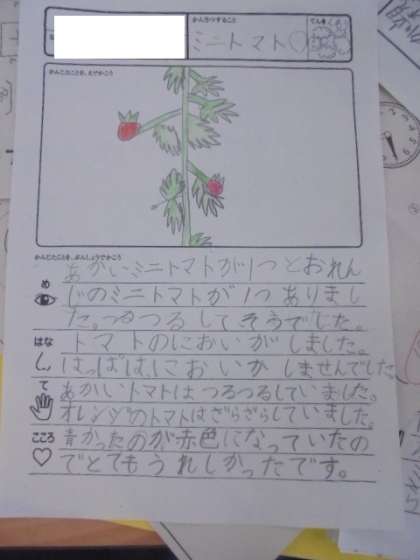 かんさつすること
ミニトマト♡
てんき
かんじたことを、えでかこう
かんじたことを、ぶんしょうでかこう
め
あかいミニトマトが1つとおれん
じのミニトマトが1つありまし
た。つるつるしてそうでした。
はな
トマトのにおいがしました。
はっぱはにおいがしませんでした
て
あかいトマトはつるつるしていました。
オレンジのトマトはざらざらしていました。
こころ
青かったのが赤色になっていたの
でとてもうれしかったです。